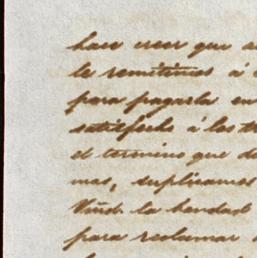 hace creer que
le remitimos á
para pagarla en
satisfecho á los
el termino que
mas, suplicamos
la bondad
para reclamar